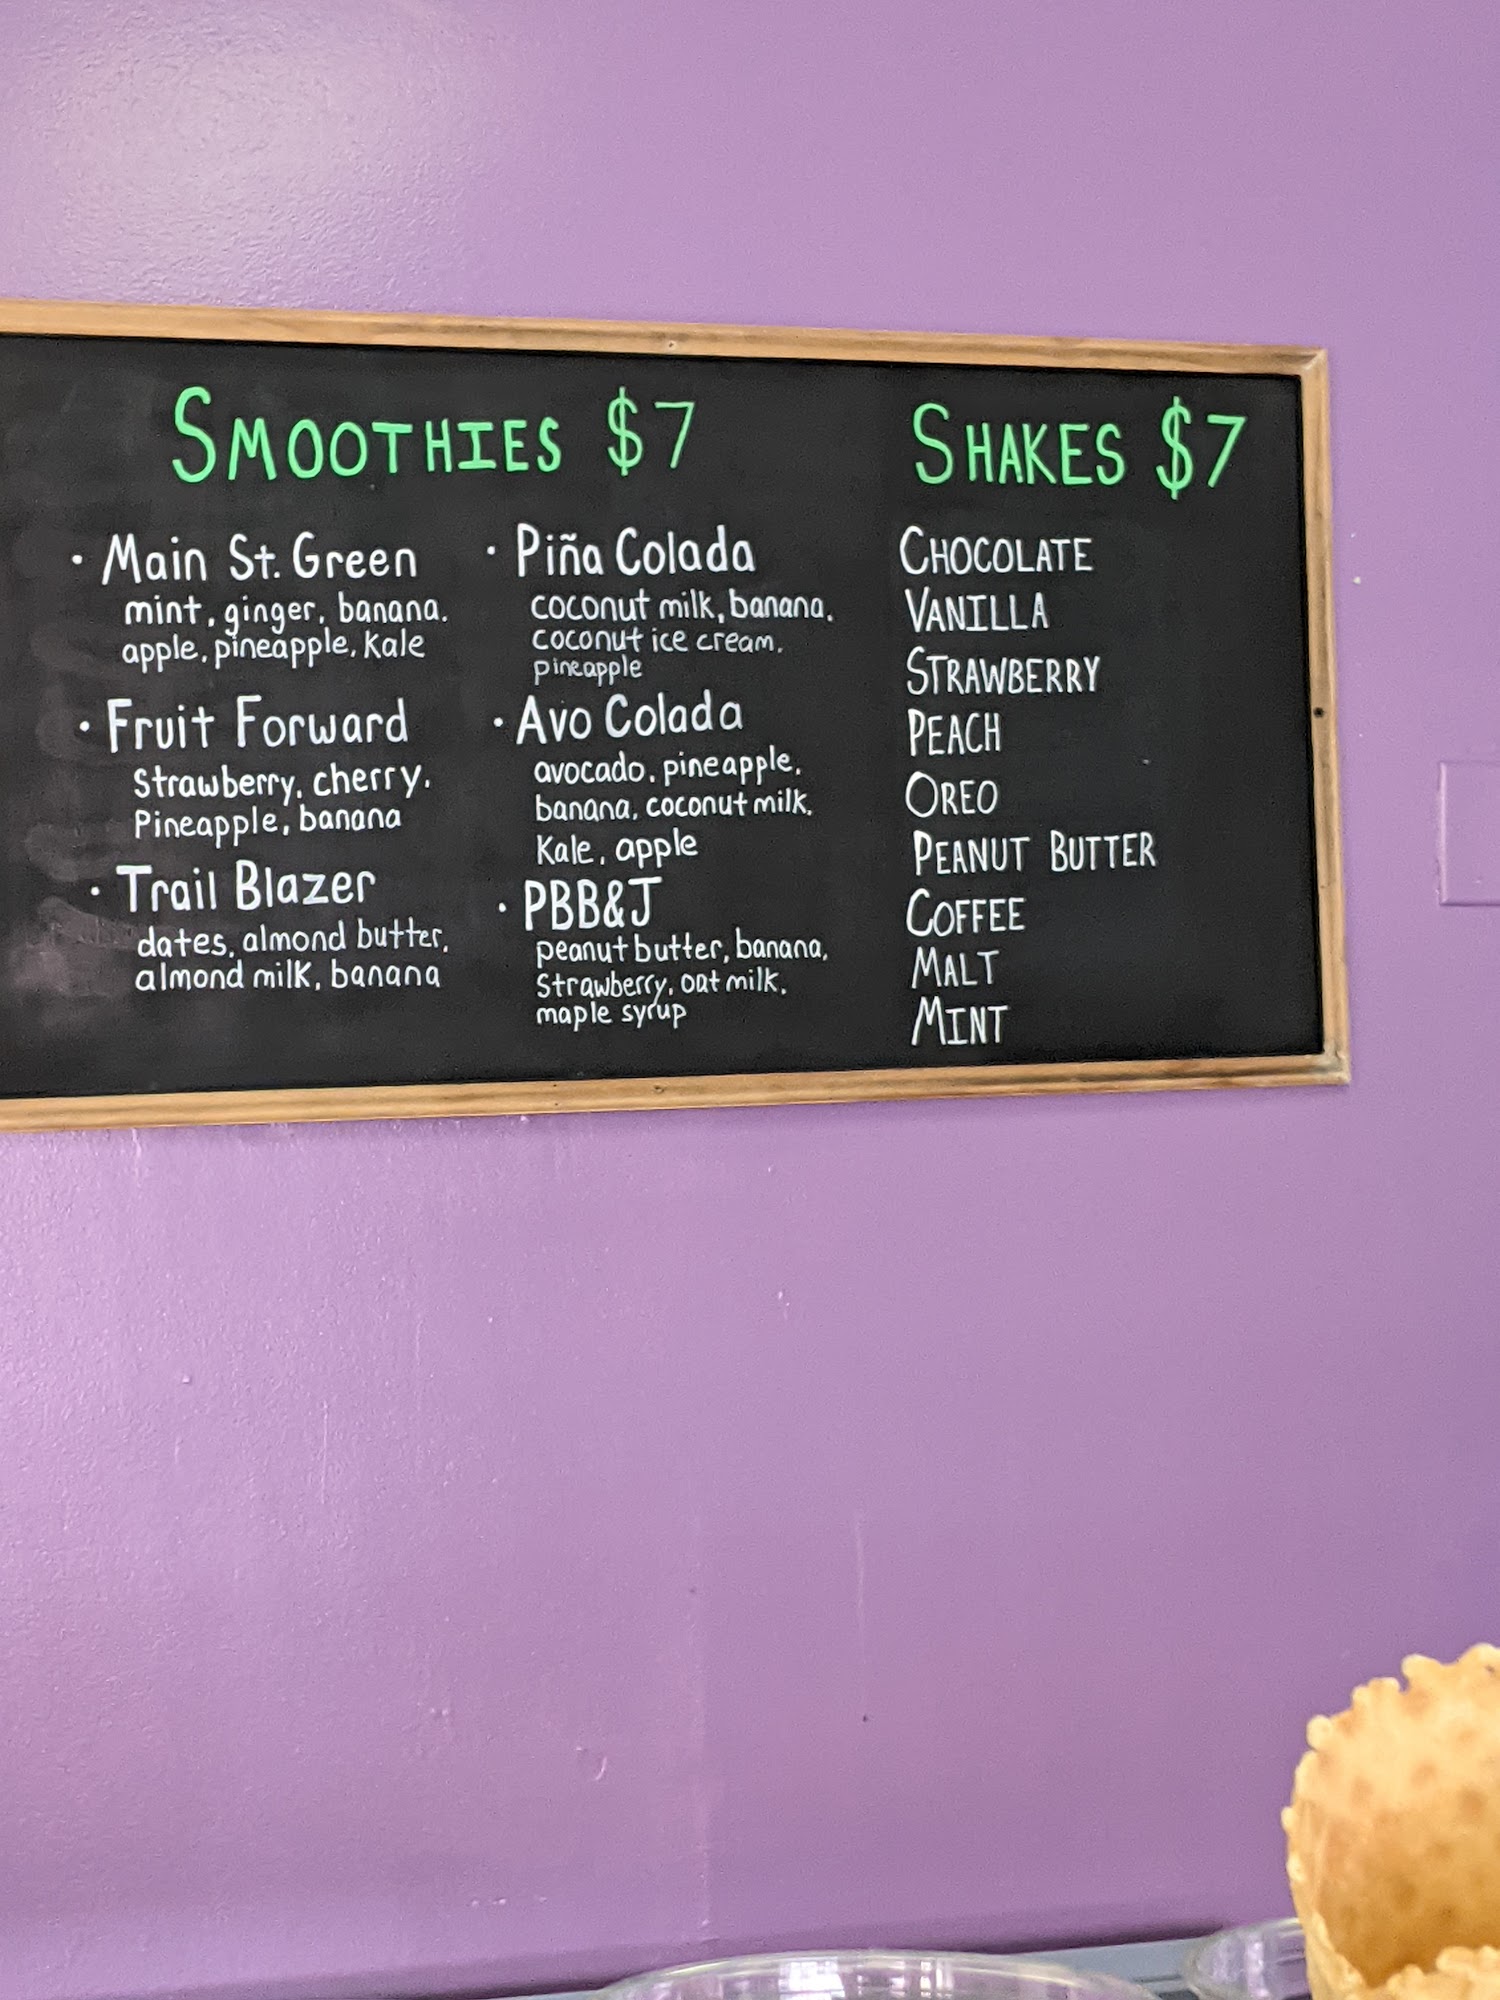 SMOOTHIES $7
· Main St. Green
mint, ginger, banana,
apple, pineapple, Kale
· Fruit Forward
Strawberry, cherry,
Pineapple, banana
· Trail Blazer
dates, almond butter,
almond milk, banana
· Piña Colada
coconut milk, banana,
coconut ice cream,
pineapple
· Avo Colada
avocado, pineapple,
banana, coconut milk,
Kale, apple
· PBB&J
peanut butter, banana,
Strawberry, oat milk,
maple syrup
SHAKES $7
CHOCOLATE
VANILLA
STRAWBERRY
PEACH
OREO
PEANUT BUTTER
COFFEE
MALT
MINT